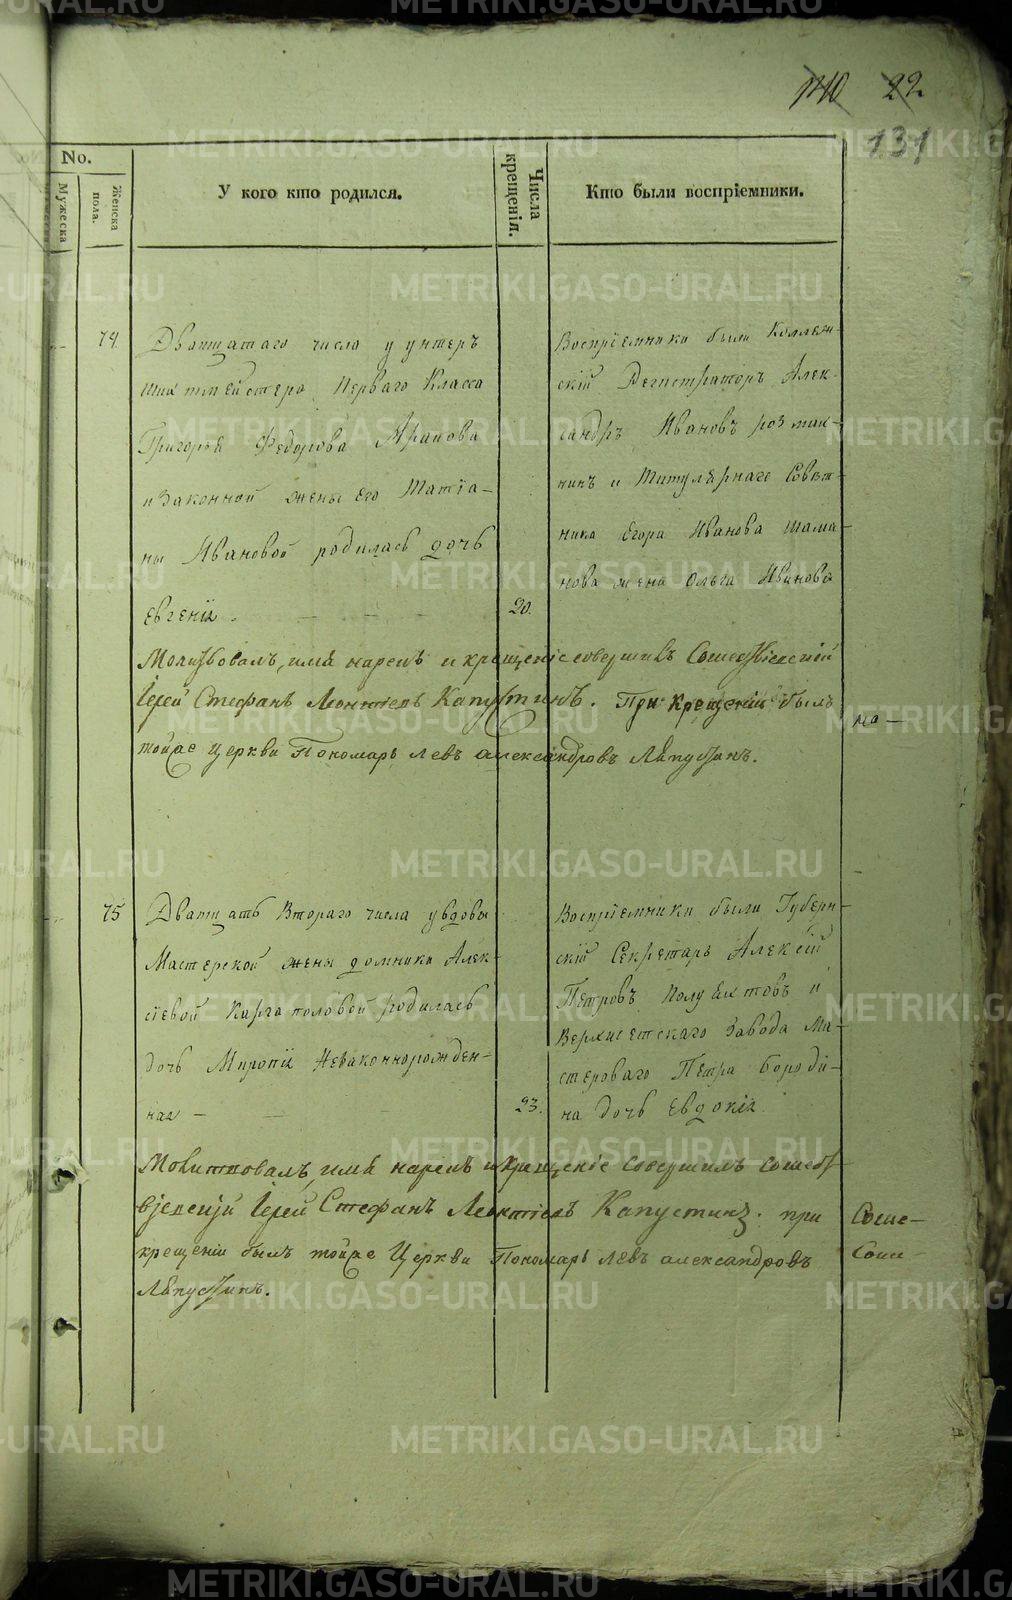 22
131
No.
Мужеска
Женска пола.
У кого кто родился.
Числа крещенія.
Кто были воспріемники.
74
Дватцатаго числа у унтеръ
шихтмейстера Перваго Класса
Григорья Федорова Арапова
и законной жены его Татіа-
ны Ивановой родилась дочь
Евгенія
20.
Воспріемники были Коллеж-
скій Регистраторъ Алек-
сандръ Ивановъ
и Титулярнаго Совѣт-
ника Егора Иванова Шама-
нова жена Ольга Иванова
Молитвовалъ, имя нарекъ и крещеніе совершилъ
Іерей Стефанъ Леонтіевъ Капустинъ. При крещеніи былъ
тойже церкви Пономарь Левъ Александровъ Ляпустинъ.
75
Дватцать Втораго числа у вдовы
Мастерской жены домники Алек-
сіевой Каргаполовой родилась
дочь Миропія Незаконнорожден-
ная
23.
Воспріемники были Губерн-
скій Секретарь Алексій
Петровъ Полуектовъ и
Верхисетскаго Завода Ма-
стероваго Петра Бороди-
на дочь Евдокія
Молитвовалъ, имя нарекъ и крещеніе совершилъ сошест-
Іерей Стефанъ Леонтіевъ Капустинъ. при
крещеніи былъ тойже Церкви Пономарь Левъ Александровъ
Ляпустинъ.
Соше-
METRIKI.GASO-URAL.RU